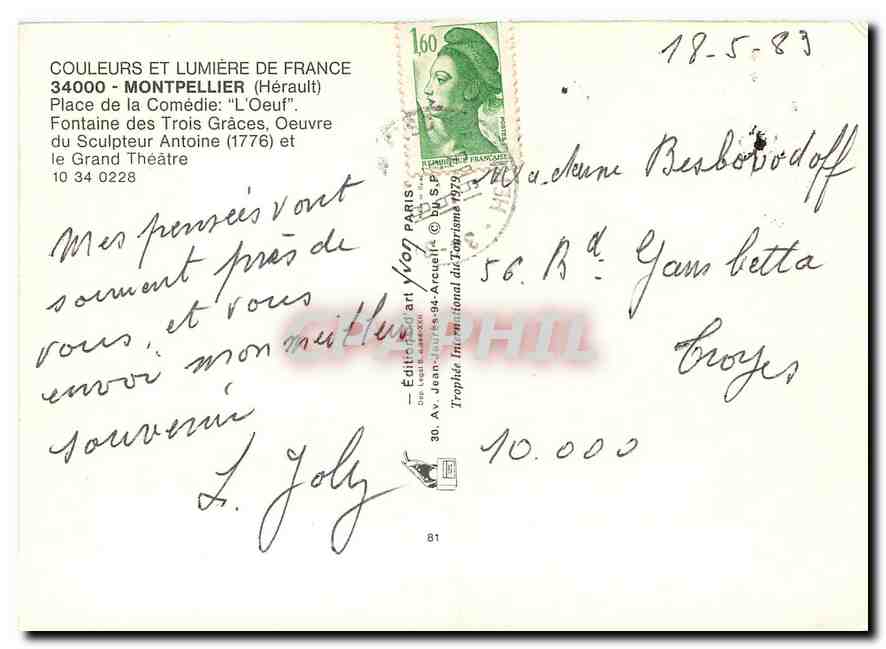 COULEURS ET LUMIÈRE DE FRANCE
34000 - MONTPELLIER (Hérault)
Place de la Comédie: "L'Oeuf".
Fontaine des Trois Grâces, Oeuvre
du Sculpteur Antoine (1776) et
le Grand Théâtre
10 34 0228
Mes pensées vont
souvent près de
vous, et vous
envoi mon meilleur
souvenir
L. Joly
1,60
POSTES
REPUBLIQUE FRANÇAISE
— Édition d'art Yvon PARIS
Dép. Légal
30. Av. Jean-Jaurès-94-Arcueil © by S.P.
Trophée International du Tourisme 1979
81
18-5-83
Madame Besborodoff
56. Bd. Gambetta
Troyes
10.000
CPAPHIL